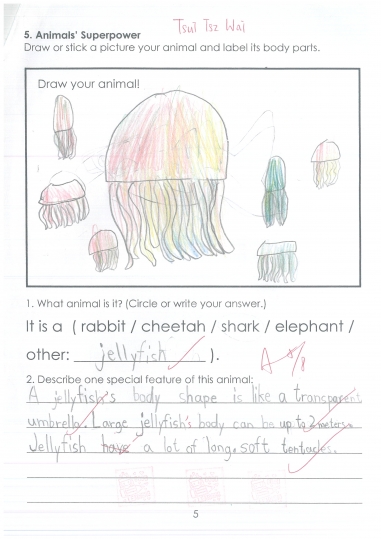 Tsui Tsz Wai
5. Animals' Superpower
Draw or stick a picture your animal and label its body parts.
Draw your animal!
1. What animal is it? (Circle or write your answer.)
It is a ( rabbit / cheetah / shark / elephant /
other: jellyfish ).
2. Describe one special feature of this animal:
A jellyfish's body shape is like a transparent
umbrella. Large jellyfish's body can be up to 2 meters.
Jellyfish have a lot of long, soft tentacles.
5